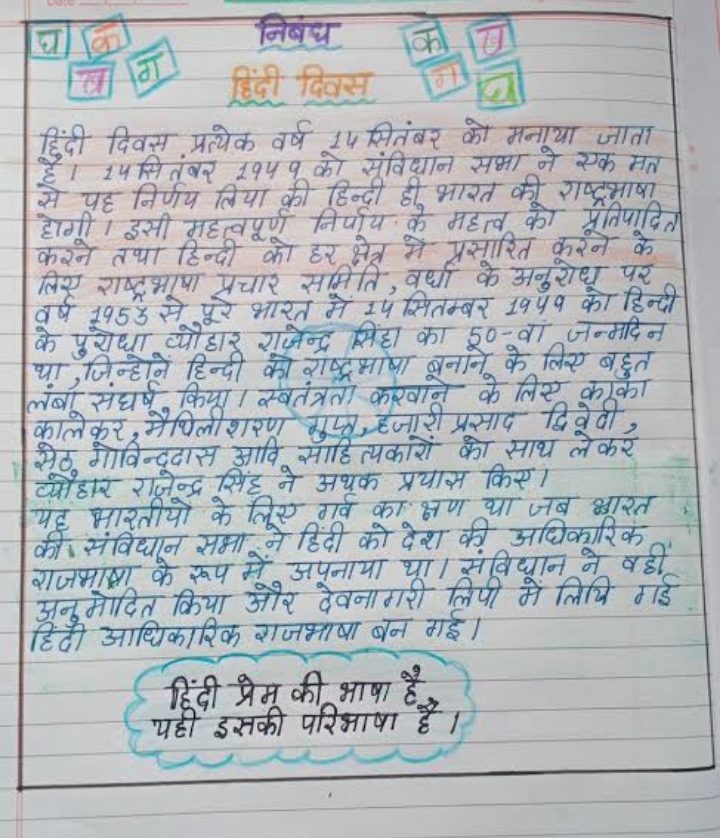 घ क निबंध क ख
ख ग हिंदी दिवस ग घ
हिंदी दिवस प्रत्येक वर्ष 14 सितंबर को मनाया जाता
है। 14 सितंबर 1949 को संविधान सभा ने एक मत
से यह निर्णय लिया की हिन्दी ही भारत की राष्ट्रभाषा
होगी। इसी महत्वपूर्ण निर्णय के महत्व को प्रतिपादित
करने तथा हिन्दी को हर क्षेत्र में प्रसारित करने के
लिए राष्ट्रभाषा प्रचार समिति, वर्धा के अनुरोध पर
वर्ष 1953 से पूरे भारत में 14 सितम्बर 1949 को हिन्दी
के पुरोधा व्यौहार राजेन्द्र सिंहा का 50-वां जन्मदिन
था, जिन्होनें हिन्दी को राष्ट्रभाषा बनाने के लिए बहुत
लंबा संघर्ष किया। स्वतंत्रता करवाने के लिए काका
कालेकर, मैथिलीशरण गुप्त, हजारी प्रसाद द्विवेदी,
सेठ गोविन्ददास आवि साहित्यकारों को साथ लेकर
व्यौहार राजेन्द्र सिंह ने अथक प्रयास किए।
यह भारतीयो के लिए गर्व का क्षण था जब भारत
की संविधान सभा ने हिंदी को देश की अधिकारिक
राजभाषा के रूप में अपनाया था। संविधान ने वही
अनुमोदित किया और देवनागरी लिपी में लिपि गई
हिंदी आधिकारिक राजभाषा बन गई।
हिंदी प्रेम की भाषा है,
यही इसकी परिभाषा है।